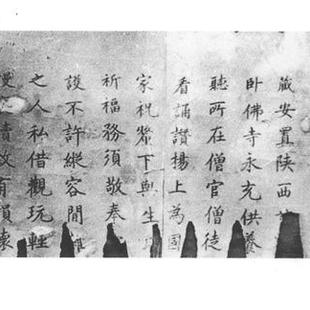 藏安置陝西
卧佛寺永充供養
聽所在僧官僧徒
看誦讚揚上為國
家祝釐下與生
祈福務須敬奉
護不許縱容閒雜
之人私借觀玩輕
慢瀆致有損壞